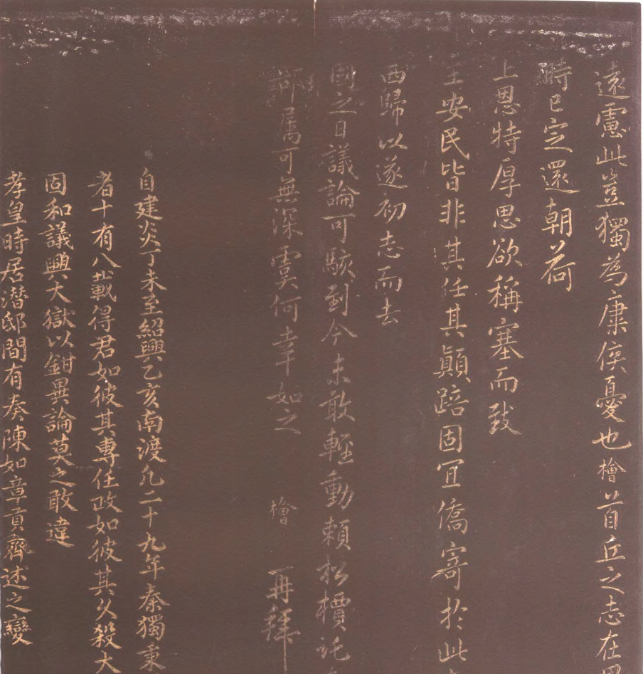 遠慮此豈獨為康侯憂也檜首丘之志在
時已定還朝荷
上恩特厚思欲稱塞而致
主安民皆非其任其顛踣固宜僑寄於此
西歸以遂初志而去
國之日議論可駭到今未敢輕動賴松檟託
部屬可無深虞何幸如之 檜 再拜
自建炎丁未至紹興乙亥南渡凡二十九年秦獨秉
者十有八載得君如彼其專任政如彼其久殺大
固和議興大獄以鉗異論莫之敢違
孝皇時居潛邸間有奏陳如章貢齊述之變